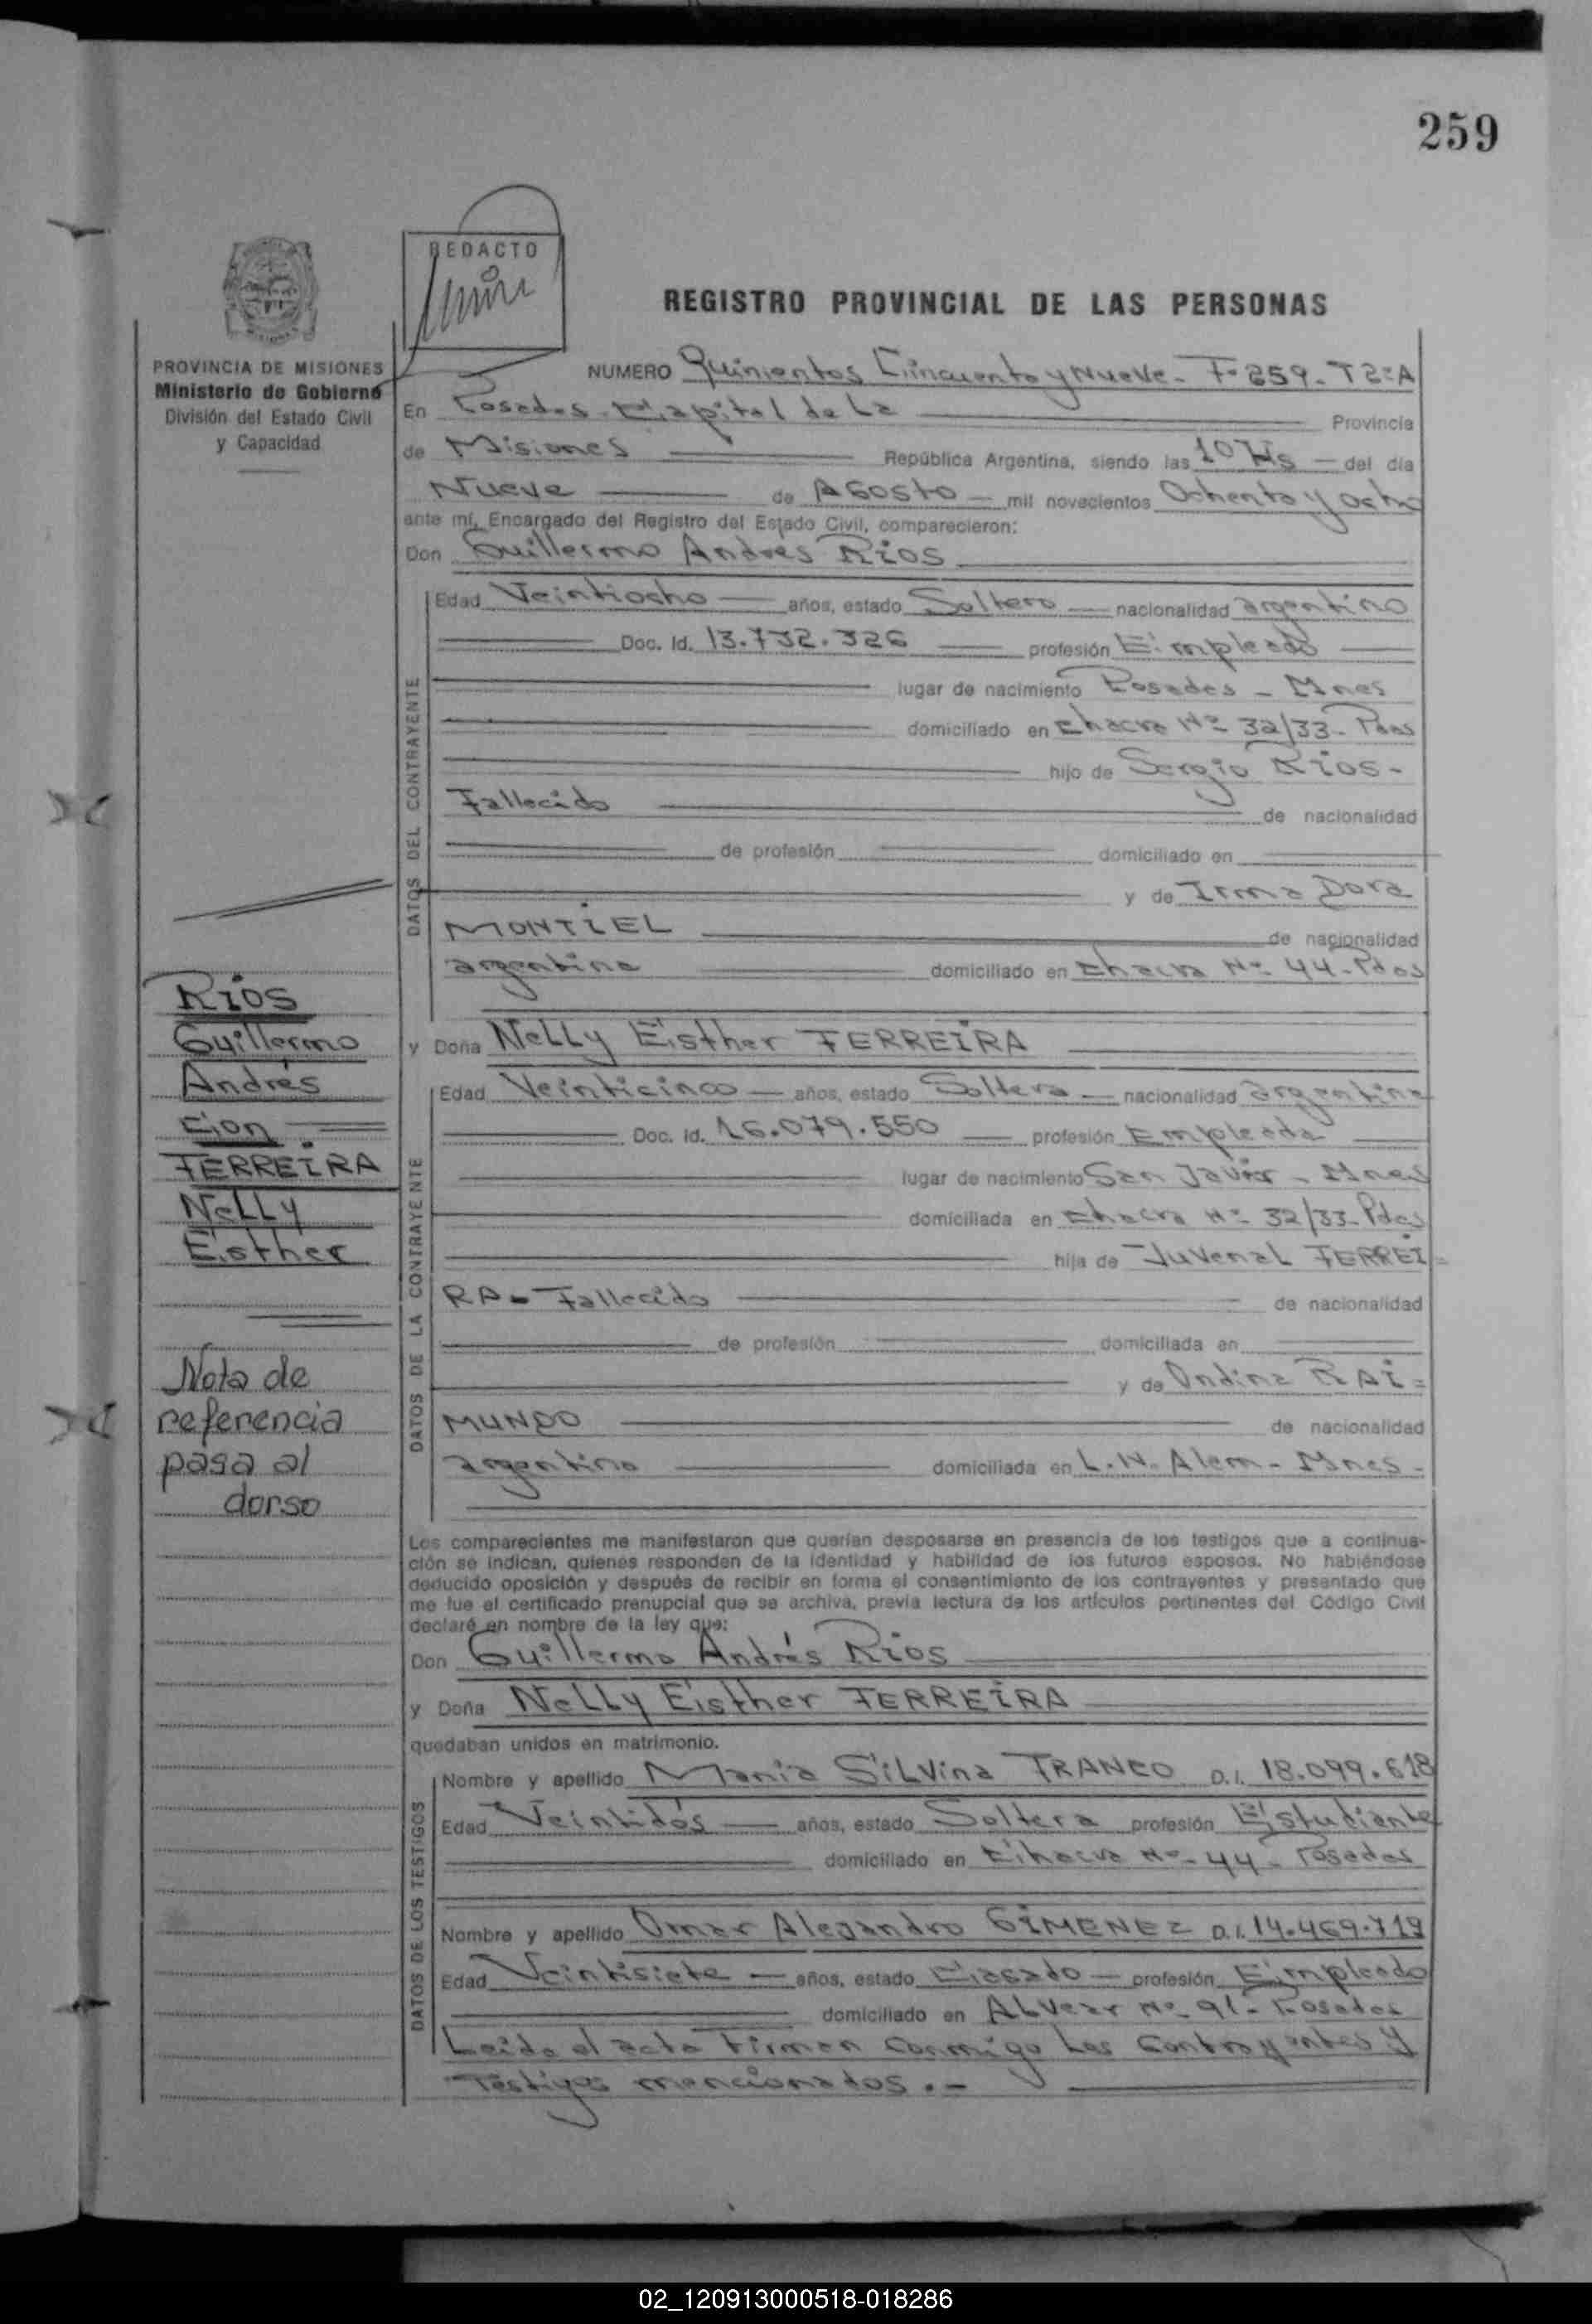 259
REDACTO
REGISTRO PROVINCIAL DE LAS PERSONAS
PROVINCIA DE MISIONES
Ministerio de Gobierno
División del Estado Civil
y Capacidad
NUMERO Quinientos Cincuenta y Nueve - Fº 259 - T 2º A
En Posadas - Capital de La Provincia
de Misiones República Argentina, siendo las 10 Hs - del día
Nueve de Agosto - mil novecientos Ochenta y ocho
ante mí, Encargado del Registro del Estado Civil, comparecieron:
Don Guillermo Andres Rios
DATOS DEL CONTRAYENTE
Edad Veintiocho años, estado Soltero nacionalidad argentino
Doc. Id. 13.732.326 profesión Empleado
lugar de nacimiento Posadas - Mnes
domiciliado en Chacra Nº 32/33 - Pdas
hijo de Sergio Rios -
Fallecido de nacionalidad
de profesión domiciliado en
y de Irma Dora
MONTIEL de nacionalidad
argentina domiciliado en Chacra Nº 44 - Pdas
y Doña Nelly Esther FERREIRA
DATOS DE LA CONTRAYENTE
Edad Veinticinco años, estado Soltera nacionalidad argentina
Doc. Id. 16.079.550 profesión Empleada
lugar de nacimiento San Javier - Mnes
domiciliada en Chacra Nº 32/33 - Pdas
hija de Juvenal FERREI=
RA - Fallecido de nacionalidad
de profesión domiciliada en
y de Ondina RAI=
MUNDO de nacionalidad
argentina domiciliada en L.N. Alem - Mnes -
Rios
Guillermo
Andrés
Con
FERREIRA
Nelly
Esther
Nota de
referencia
pasa al
dorso
Los comparecientes me manifestaron que querían desposarse en presencia de los testigos que a continua-
ción se indican, quienes responden de la identidad y habilidad de los futuros esposos. No habiéndose
deducido oposición y después de recibir en forma el consentimiento de los contrayentes y presentado que
me fue el certificado prenupcial que se archiva, previa lectura de los artículos pertinentes del Código Civil
declaré en nombre de la ley que:
Don Guillermo Andrés Rios
y Doña Nelly Esther FERREIRA
quedaban unidos en matrimonio.
DATOS DE LOS TESTIGOS
Nombre y apellido Maria Silvina FRANCO D.I. 18.099.618
Edad Veintidós años, estado Soltera profesión Estudiante
domiciliado en Chacra Nº 44 - Posadas
Nombre y apellido Omar Alejandro GIMENEZ D.I. 14.469.719
Edad Veintisiete años, estado Casado profesión Empleado
domiciliado en Alvear Nº 91 - Posadas
Leida el acta Firman Conmigo Los Contrayentes y
Testigos mencionados . -
02_120913000518-018286